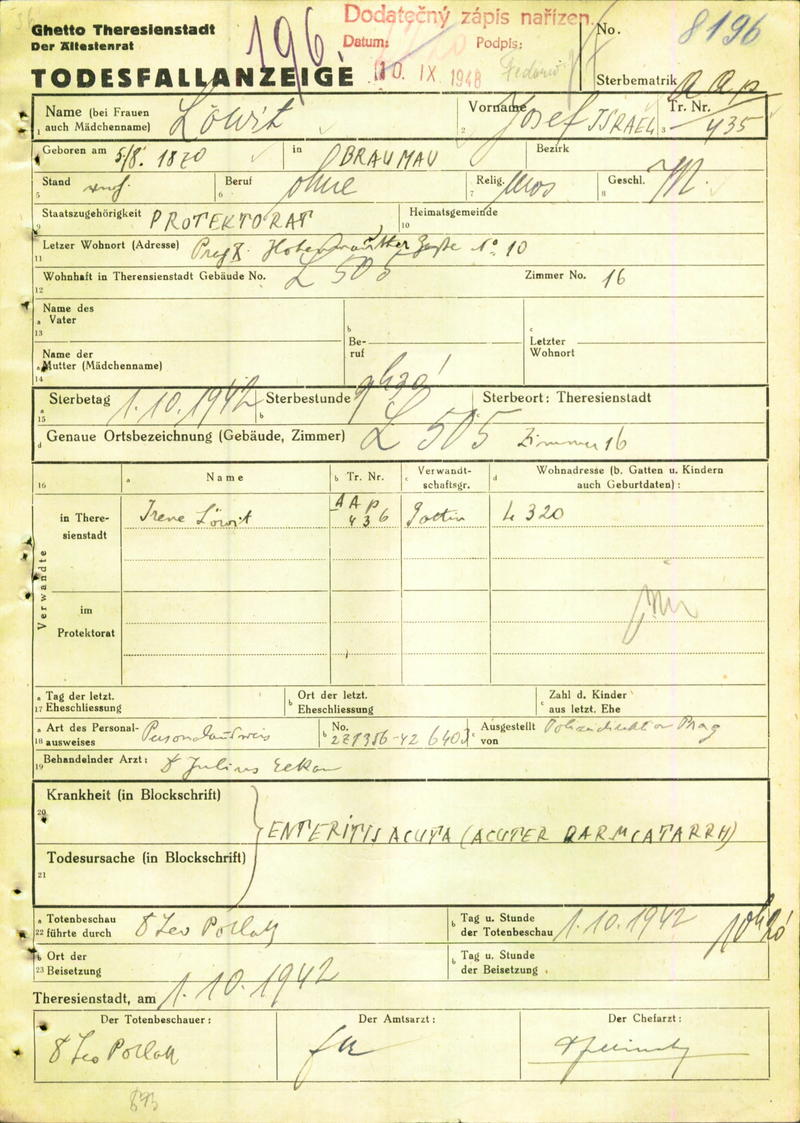 Ghetto Theresienstadt
Der Ältestenrat
TODESFALLANZEIGE
196
Dodatečný zápis nařízen.
Datum:
Podpis:
10. IX 1948
No. 8196
Sterbematrik
Name (bei Frauen auch Mädchenname) Löwit
Vorname Josef ISRAEL
Tr. Nr. AAp 435
Geboren am 5/8. 1870
in OBRAUMAU
Bezirk
Stand verh.
Beruf ohne
Relig. Mos
Geschl. M.
Staatszugehörigkeit PROTEKTORAT
Heimatsgemeinde
Letzer Wohnort (Adresse) Prag No 10
Wohnhaft in Therensienstadt Gebäude No. L 505
Zimmer No. 16
Name des Vater
Beruf
Letzter Wohnort
Name der Mutter (Mädchenname)
Sterbetag 1.10.1942
Sterbestunde
Sterbeort: Theresienstadt
Genaue Ortsbezeichnung (Gebäude, Zimmer) L 505 Zimmer 16
Name
Tr. Nr.
Verwandtschaftsgr.
Wohnadresse (b. Gatten u. Kindern auch Geburtdaten):
Verwandte
in Theresienstadt
Irene Löwit
AAp 436
Gattin
L 320
im Protektorat
Tag der letzt. Eheschliessung
Ort der letzt. Eheschliessung
Zahl d. Kinder aus letzt. Ehe
Art des Personalausweises Personalausweis
No.
Ausgestellt von Polizeidirektion Prag
Behandelnder Arzt: Dr Julius
Krankheit (in Blockschrift)
ENTERITIS ACUTA (ACUTER DARMCATARRH)
Todesursache (in Blockschrift)
Totenbeschau führte durch Dr Leo Pollak
Tag u. Stunde der Totenbeschau 1.10.1942
Ort der Beisetzung
Tag u. Stunde der Beisetzung
Theresienstadt, am 1.10.1942
Der Totenbeschauer:
Der Amtsarzt:
Der Chefarzt:
Dr Leo Pollak